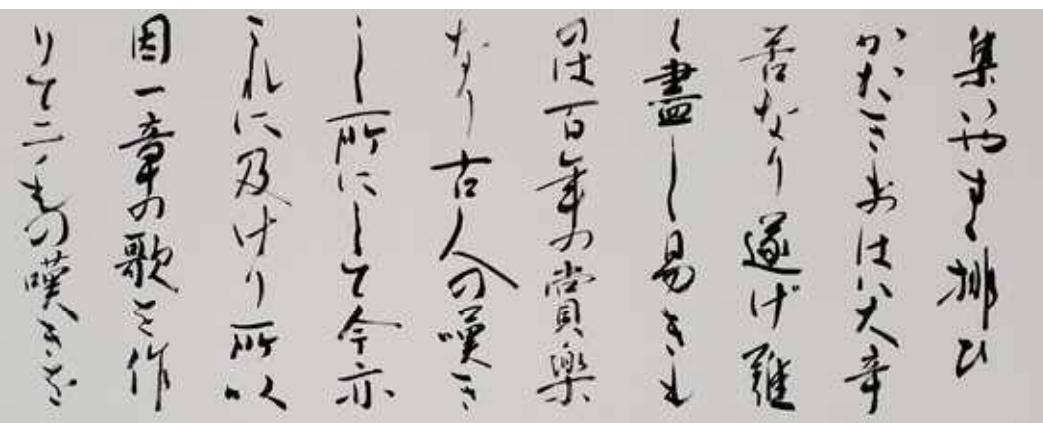 集いやすく排ひ
かたきものは八大辛
苦なり遂げ難
く盡し易きも
のは百年の賞樂
なり古人の嘆き
し所にして今亦
これに及けり所以
因一章の歌を作
りて二毛の嘆きを